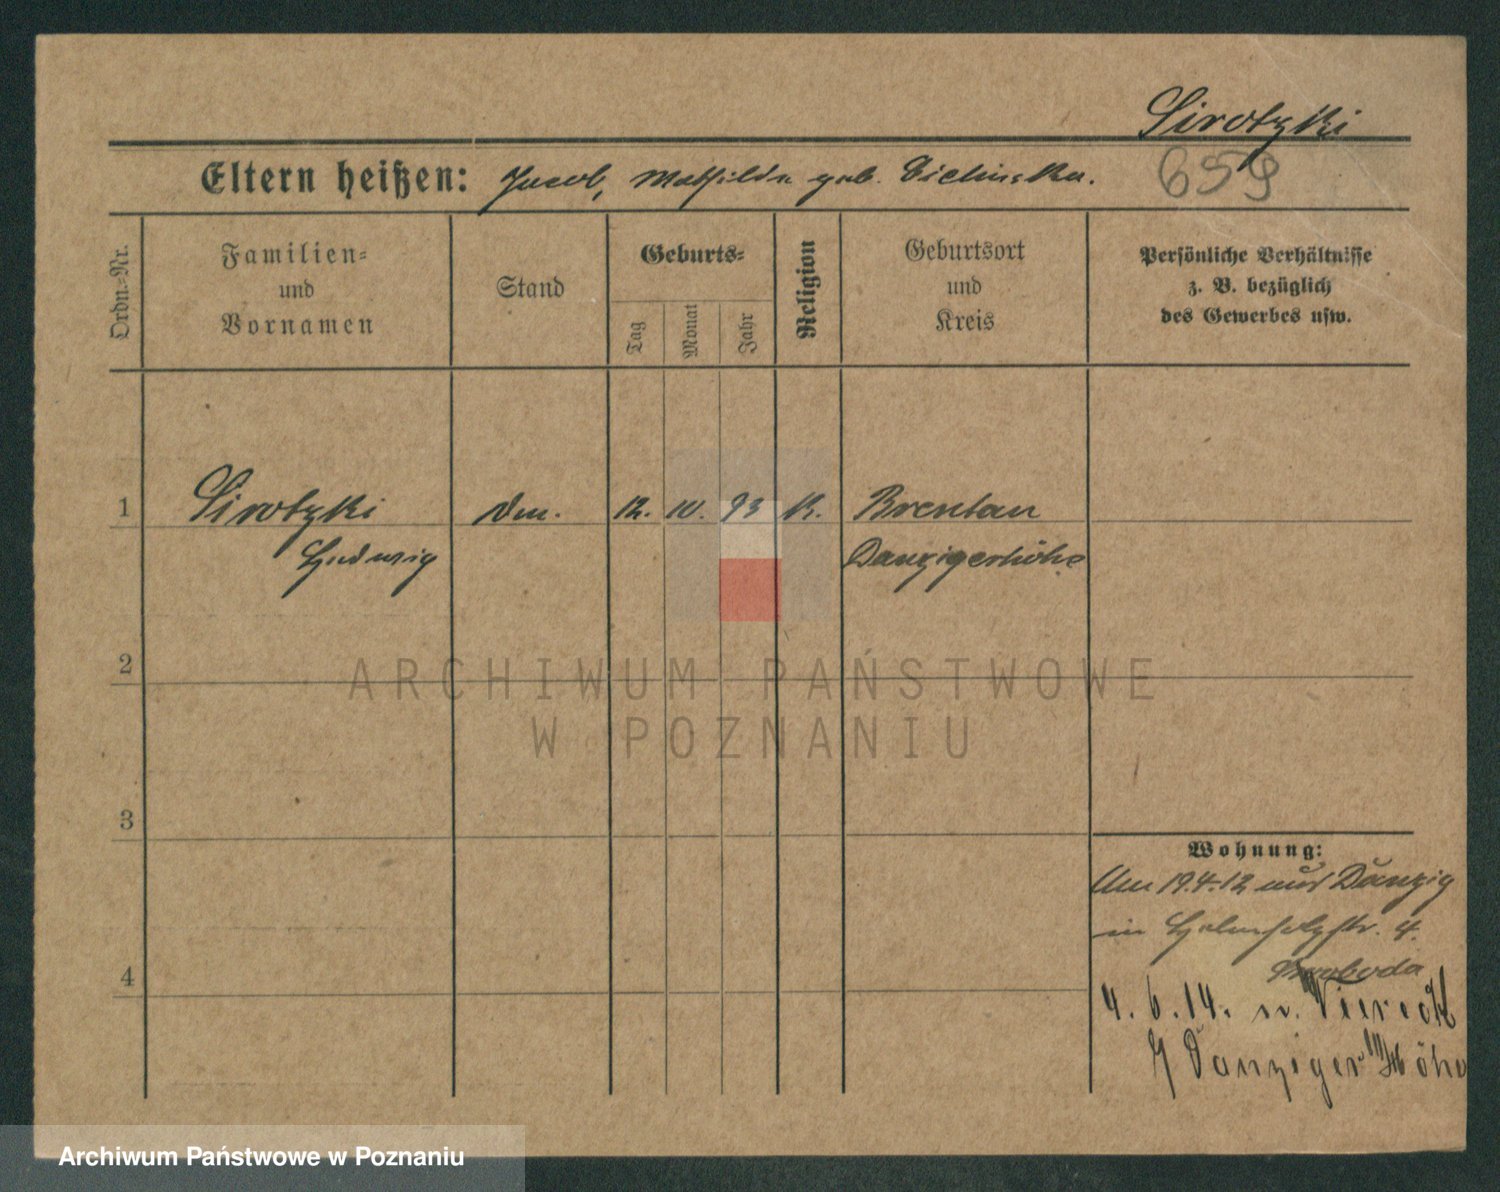 Sirotzki
659
Eltern heißen: Jacob, Mathilde geb. Zielinska.
Ordn.-Nr.
Familien- und Vornamen
Stand
Geburts-
Tag
Monat
Jahr
Religion
Geburtsort und Kreis
Persönliche Verhältnisse z. B. bezüglich des Gewerbes usw.
1 Sirotzki 12. 10. 93 K. Brentau
Ludwig Danzigerhöhe
2
3
4
Wohnung:
Am 19.4.12 aus Danzig
in 4.
Swoboda
4.6.14. n. Viereck
Danziger Höhe
ARCHIWUM PAŃSTWOWE
W POZNANIU
Archiwum Państwowe w Poznaniu